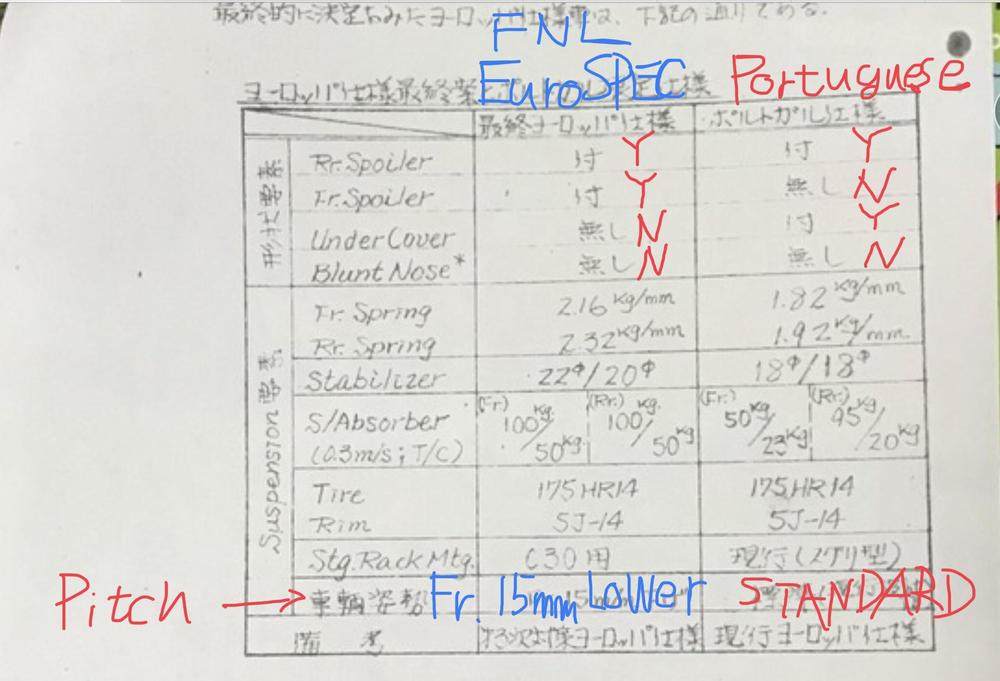 最終的に決定をみたヨーロッパ仕様車は、下記の通りである。
FNL
EuroSPEC Portuguese
ヨーロッパ仕様最終案と 仕様
最終ヨーロッパ仕様 ポルトガル仕様
形状要素
Rr. Spoiler 付 Y 付 Y
Fr. Spoiler 付 Y 無し N
Under Cover 無し N 付 Y
Blunt Nose* 無し N 無し N
Suspension要素
Fr. Spring 2.16 kg/mm 1.82 kg/mm
Rr. Spring 2.32 kg/mm 1.92 kg/mm
Stabilizer 22φ/20φ 18φ/18φ
S/Absorber (Fr.) 100kg/50kg (Rr.) 100kg/50kg (Fr.) 50kg/23kg (Rr.) 95kg/20kg
(0.3m/s; T/C)
Tire 175HR14 175HR14
Rim 5J-14 5J-14
Stg. Rack Mtg. C30用 現行(メクリ型)
Pitch → 車輌姿勢 Fr. 15mm Lower STANDARD
備考 ヨーロッパ仕様 現行ヨーロッパ仕様